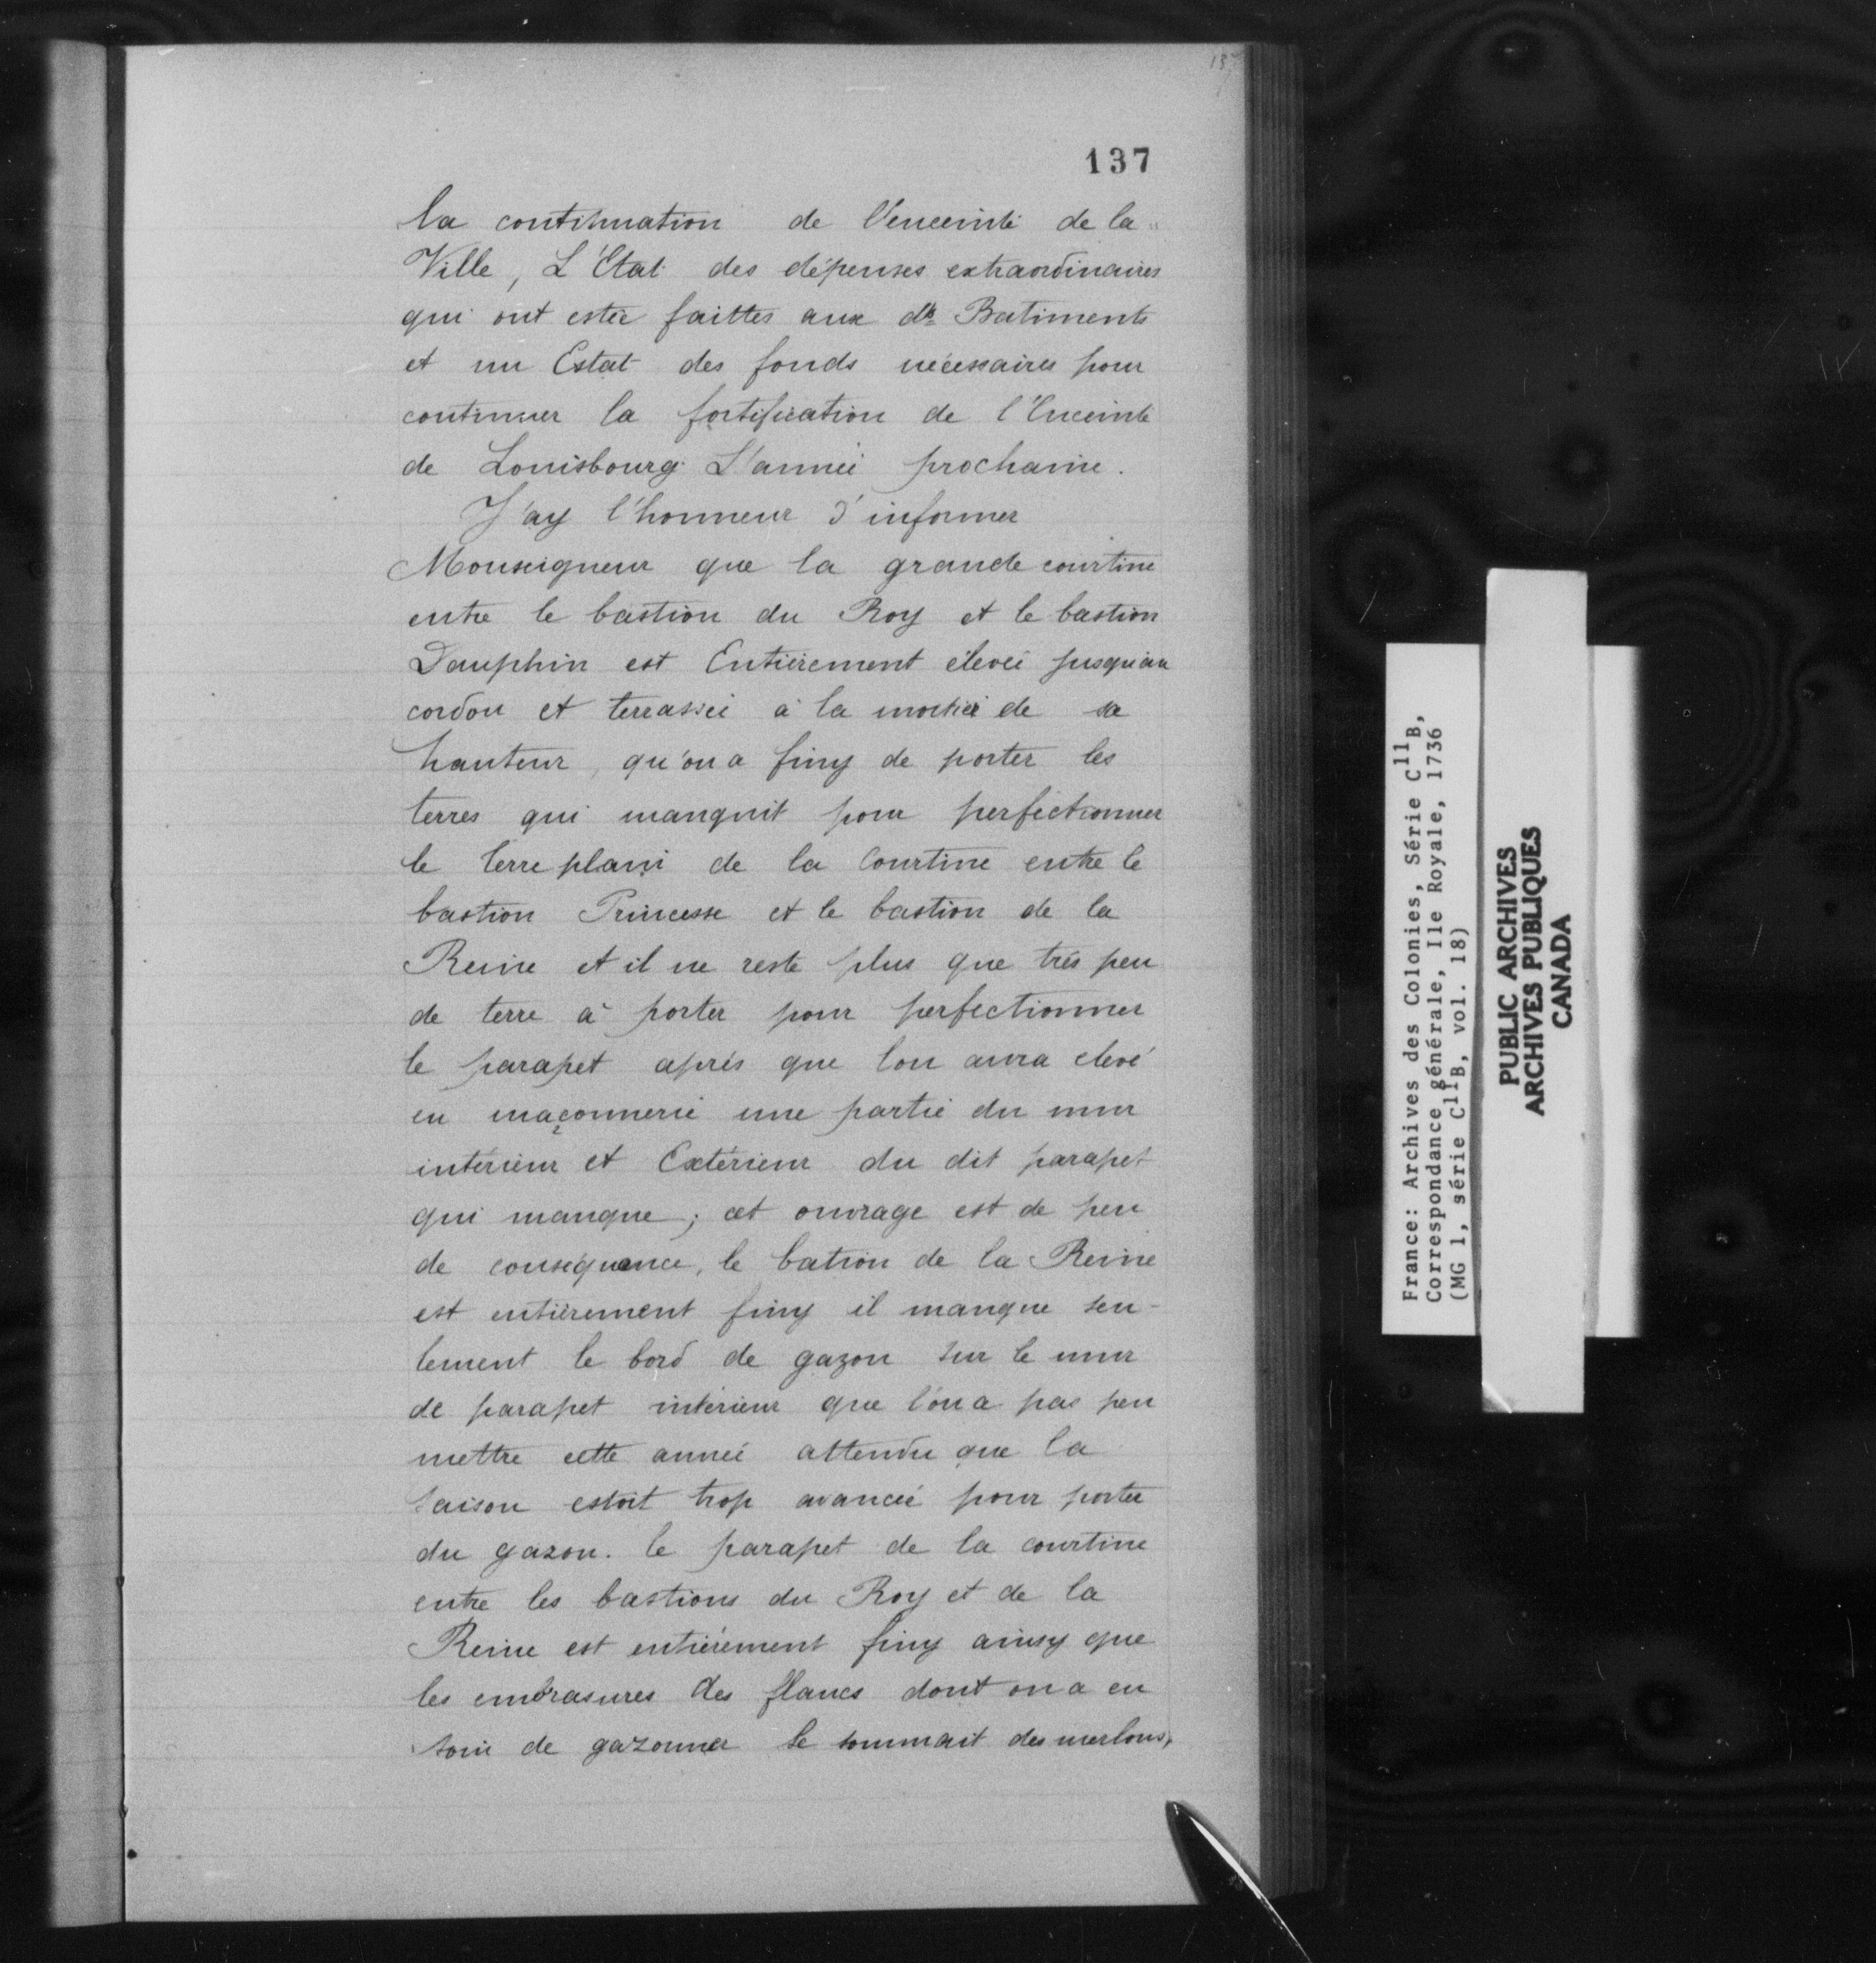 137
la continuation de l'enceinte de la
Ville, L'Etat des dépenses extraordinaires
qui ont estée faittes aux ds Batiments
et un Estat des fonds nécessaires pour
continuer la fortification de l'Enceinte
de Louisbourg L'année prochaine.
J'ay l'honneur d'informer
Monseigneur que la grande courtine
entre le bastion du Roy et le bastion
Dauphin est Entièrement élevée jusqu'au
cordon et terrassée à la moitié de sa
hauteur, qu'on a finy de porter les
terres qui manquit pour perfectionner
le terre plain de la Courtine entre le
bastion Princesse et le bastion de la
Reine et il ne reste plus que très peu
de terre à porter pour perfectionner
le parapet après que lon aura elevé
en maçonnerie une partie du mur
intérieur et Extérieur du dit parapet
qui manque; cet ouvrage est de peu
de conséquence, le bation de la Reine
est entièrement finy il manque seu-
lement le bord de gazon sur le mur
de parapet intérieur que l'on a pas peu
mettre cette année attendu que la
saison estoit trop avancée pour porter
du gazon. le parapet de la courtine
entre les bastions du Roy et de la
Reine est entièrement finy ainsy que
les embrasures des flancs dont on a eu
soin de gazonner le sommait des merlons,
France: Archives des Colonies, Série C11B,
Correspondance générale, Ile Royale, 1736
(MG 1, série C11B, vol. 18)
PUBLIC ARCHIVES
ARCHIVES PUBLIQUES
CANADA